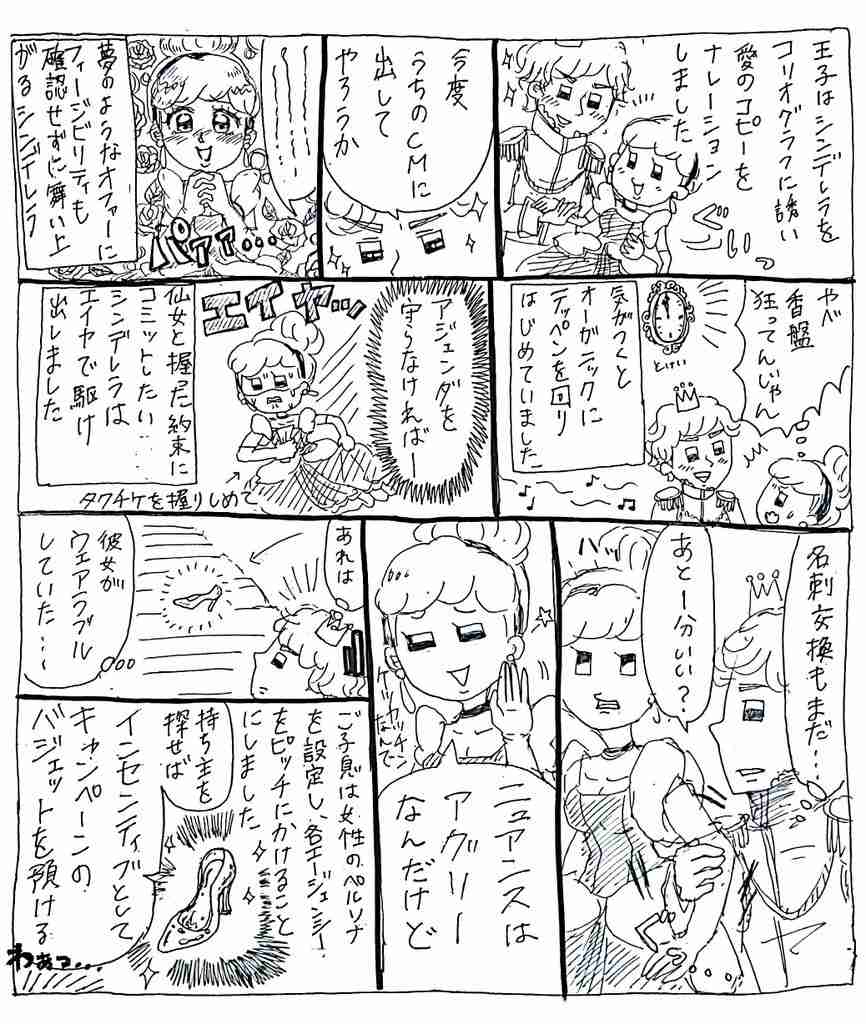 王子はシンデレラを
コリオグラフに誘い
愛のコピーを
ナレーション
しました
ぐいっ
今度
うちのCMに
出して
やろうか
パァァ…
夢のようなオファーに
フィージビリティも
確認せずに舞い上
がるシンデレラ
やべ
香盤
狂ってんじゃん
とけい
気がつくと
オーガニックに
テッペンを回り
はじめていました
アジェンダを
守らなければー
エイヤーッ
タクチケを握りしめて
仙女と握った約束に
コミットしたい……
シンデレラは
エイヤで駆け
出しました
名刺交換もまだ…
あと一分いい？
バッ
ニュアンスは
アグリー
なんだけど
ケツカッチン
なんで
あれは
彼女が
ウェアラブル
していた…
ご子息は女性のペルソナ
を設定し、各エージェンシー
をピッチにかけること
にしました
持ち主を
探せば
インセンティブとして
キャンペーンの
バジェットを預ける
わぁっ…